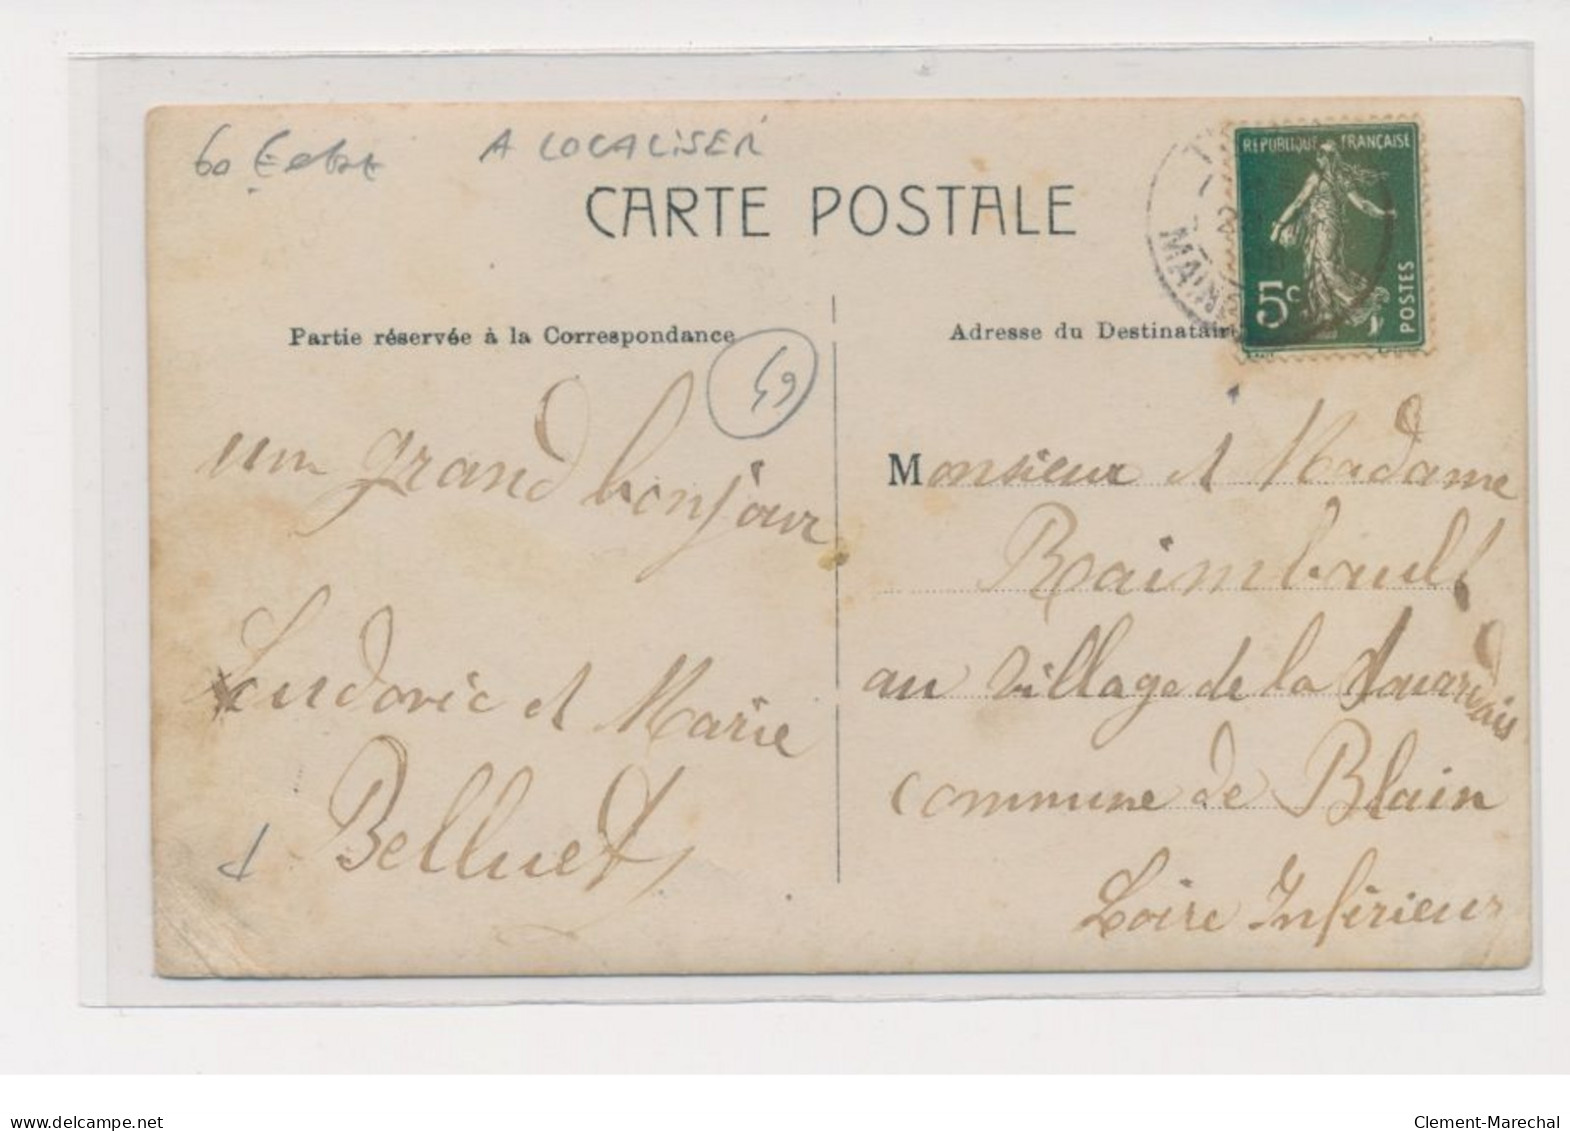 60
A LOCALISER
CARTE POSTALE
REPUBLIQUE FRANÇAISE
5c
POSTES
Partie réservée à la Correspondance
Adresse du Destinataire
49
un grand bonjour
Ludovic et Marie
Belluet
Monsieur et Madame
Raimbault
au village de la
commune de Blain
Loire Inférieur
www.delcampe.net
Clement-Marechal